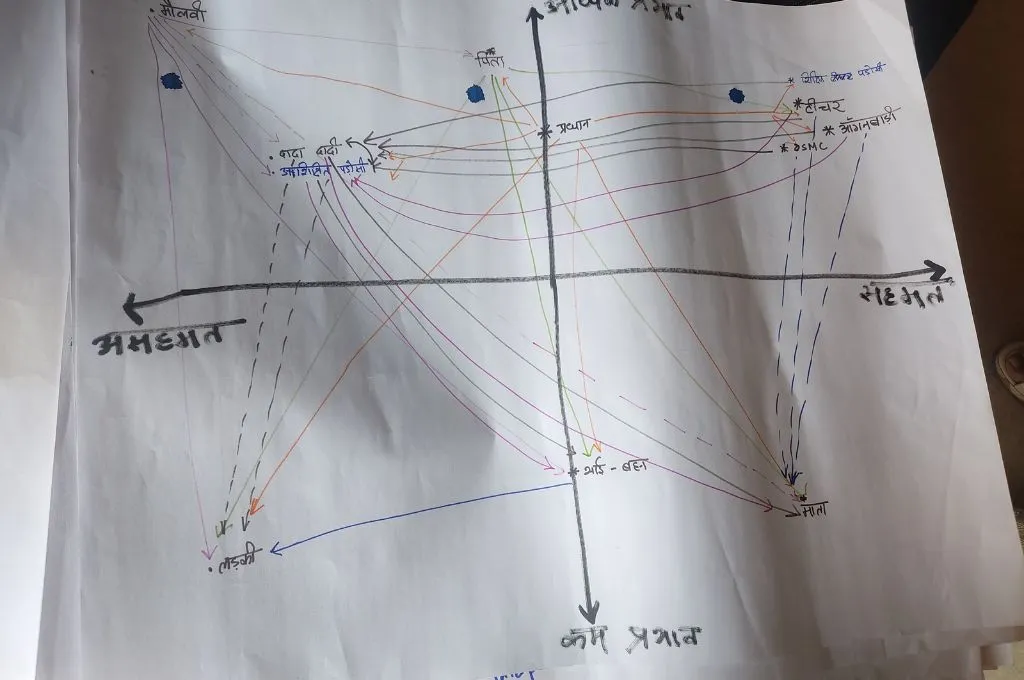 मौलवी
अधिक प्रभाव
पिता
शिक्षित पड़ोसी
टीचर
आँगनबाड़ी
SMC
प्रधान
दादा दादी
अशिक्षित पड़ोसी
सहमत
असहमत
भाई - बहन
माता
लड़की
कम प्रभाव